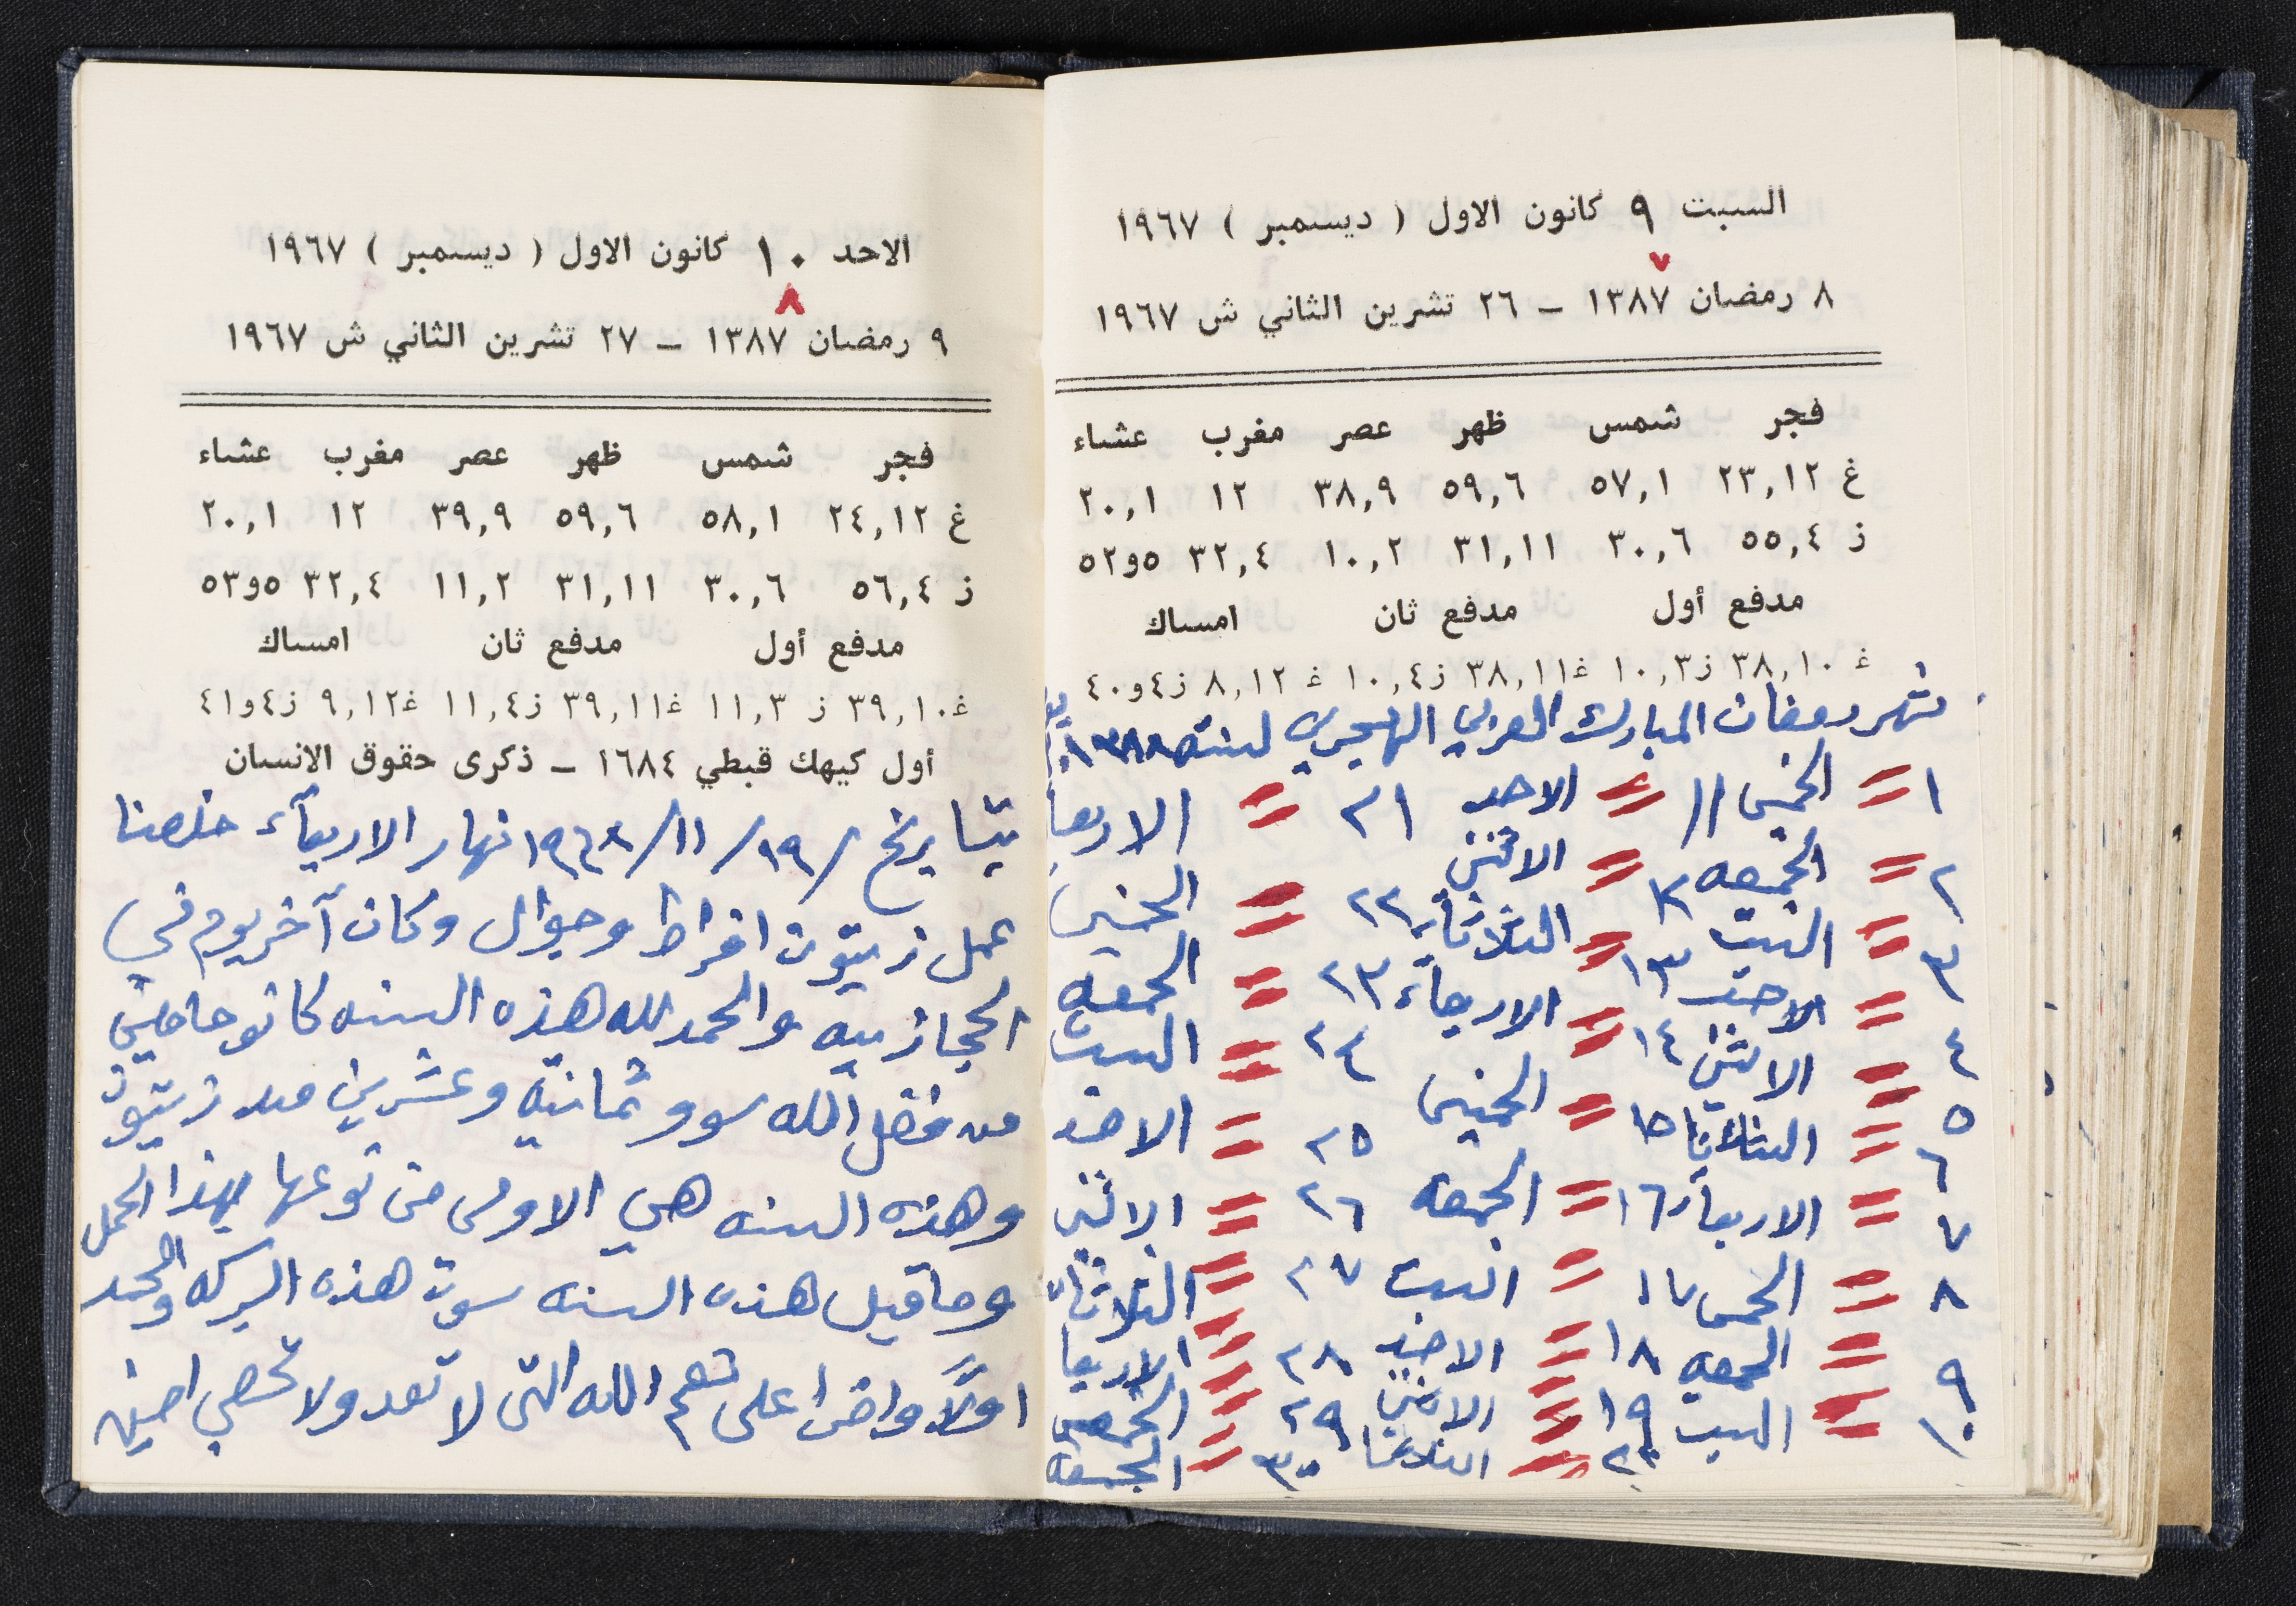 السبت ٩ كانون الاول ( ديسمبر ) ١٩٦٧
٧
٨ رمضان ١٣٨٧ – ٢٦ تشرين الثاني ش ١٩٦٧
فجر شمس ظهر عصر مغرب عشاء
غ ٢٣,١٢ ٥٧,١ ٥٩,٦ ٣٨,٩ ١٢ ٢٠,١
ز ٥٥,٤ ٣٠,٦ ٣١,١١ ١٠,٢ ٣٢,٤ ٥و٥٢
مدفع أول مدفع ثان امساك
غ ٣٨,١٠ ز١٠,٣ غ٣٨,١١ ز١٠,٤ غ ٨,١٢ ز٤و٤٠
شهر رمضان المبارك العربي الهجري لسنة ١٣٨٨
١ = الخميس ١١ = الاحد ٢١ = الاربعا
٢ = الجمعه ١٢ = الاثنين ٢٢ = الخميس
٣ = السبت ١٣ = الثلاثاء ٢٣ = الجمعه
٤ = الاحد ١٤ = الاربعاء ٢٤ = السبت
٥ = الاثنين ١٥ = الخميس ٢٥ = الاحد
٦ = الثلاثا ١٦ = الجمعه ٢٦ = الاثنين
٧ = الاربعاء ١٧ = السبت ٢٧ = الثلاثاء
٨ = الخمس ١٨ = الاحد ٢٨ = الاربعا
٩ = الجمعه ١٩ = الاثنين ٢٩ = الخميس
١٠ = السبت ٢٠ = الثلاثا ٣٠ = الجمعه
الاحد ١٠ كانون الاول ( ديسمبر ) ١٩٦٧
٨
٩ رمضان ١٣٨٧ – ٢٧ تشرين الثاني ش ١٩٦٧
فجر شمس ظهر عصر مغرب عشاء
غ ٢٤,١٢ ٥٨,١ ٥٩,٦ ٣٩,٩ ١٢ ٢٠,١
ز ٥٦,٤ ٣٠,٦ ٣١,١١ ١١,٢ ٣٢,٤ ٥و٥٣
مدفع أول مدفع ثان امساك
غ٣٩,١٠ ز ١١,٣ غ٣٩,١١ ز١١,٤ غ٩,١٢ ز٤و٤١
أول كيهك قبطي ١٦٨٤ – ذكرى حقوق الانسان
بتاريخ /١٩/ ١١/ ١٩٦٨ نهار الاربعآء خلصنا
عمل زيتون افراط وجوال وكان آخر يوم في
الحجازييه والحمد لله هذه السنه كانو حاملين
من فضل الله سوو ثمانيه وعشرين مد زيتون
وهذه السنه هي الاولى من نوعها بهذا الحمل
وما قبل هذه السنه سوت هذه البركه والحمد
اولاً واخرا على نعم الله التى لا تعد ولا تحصي امين